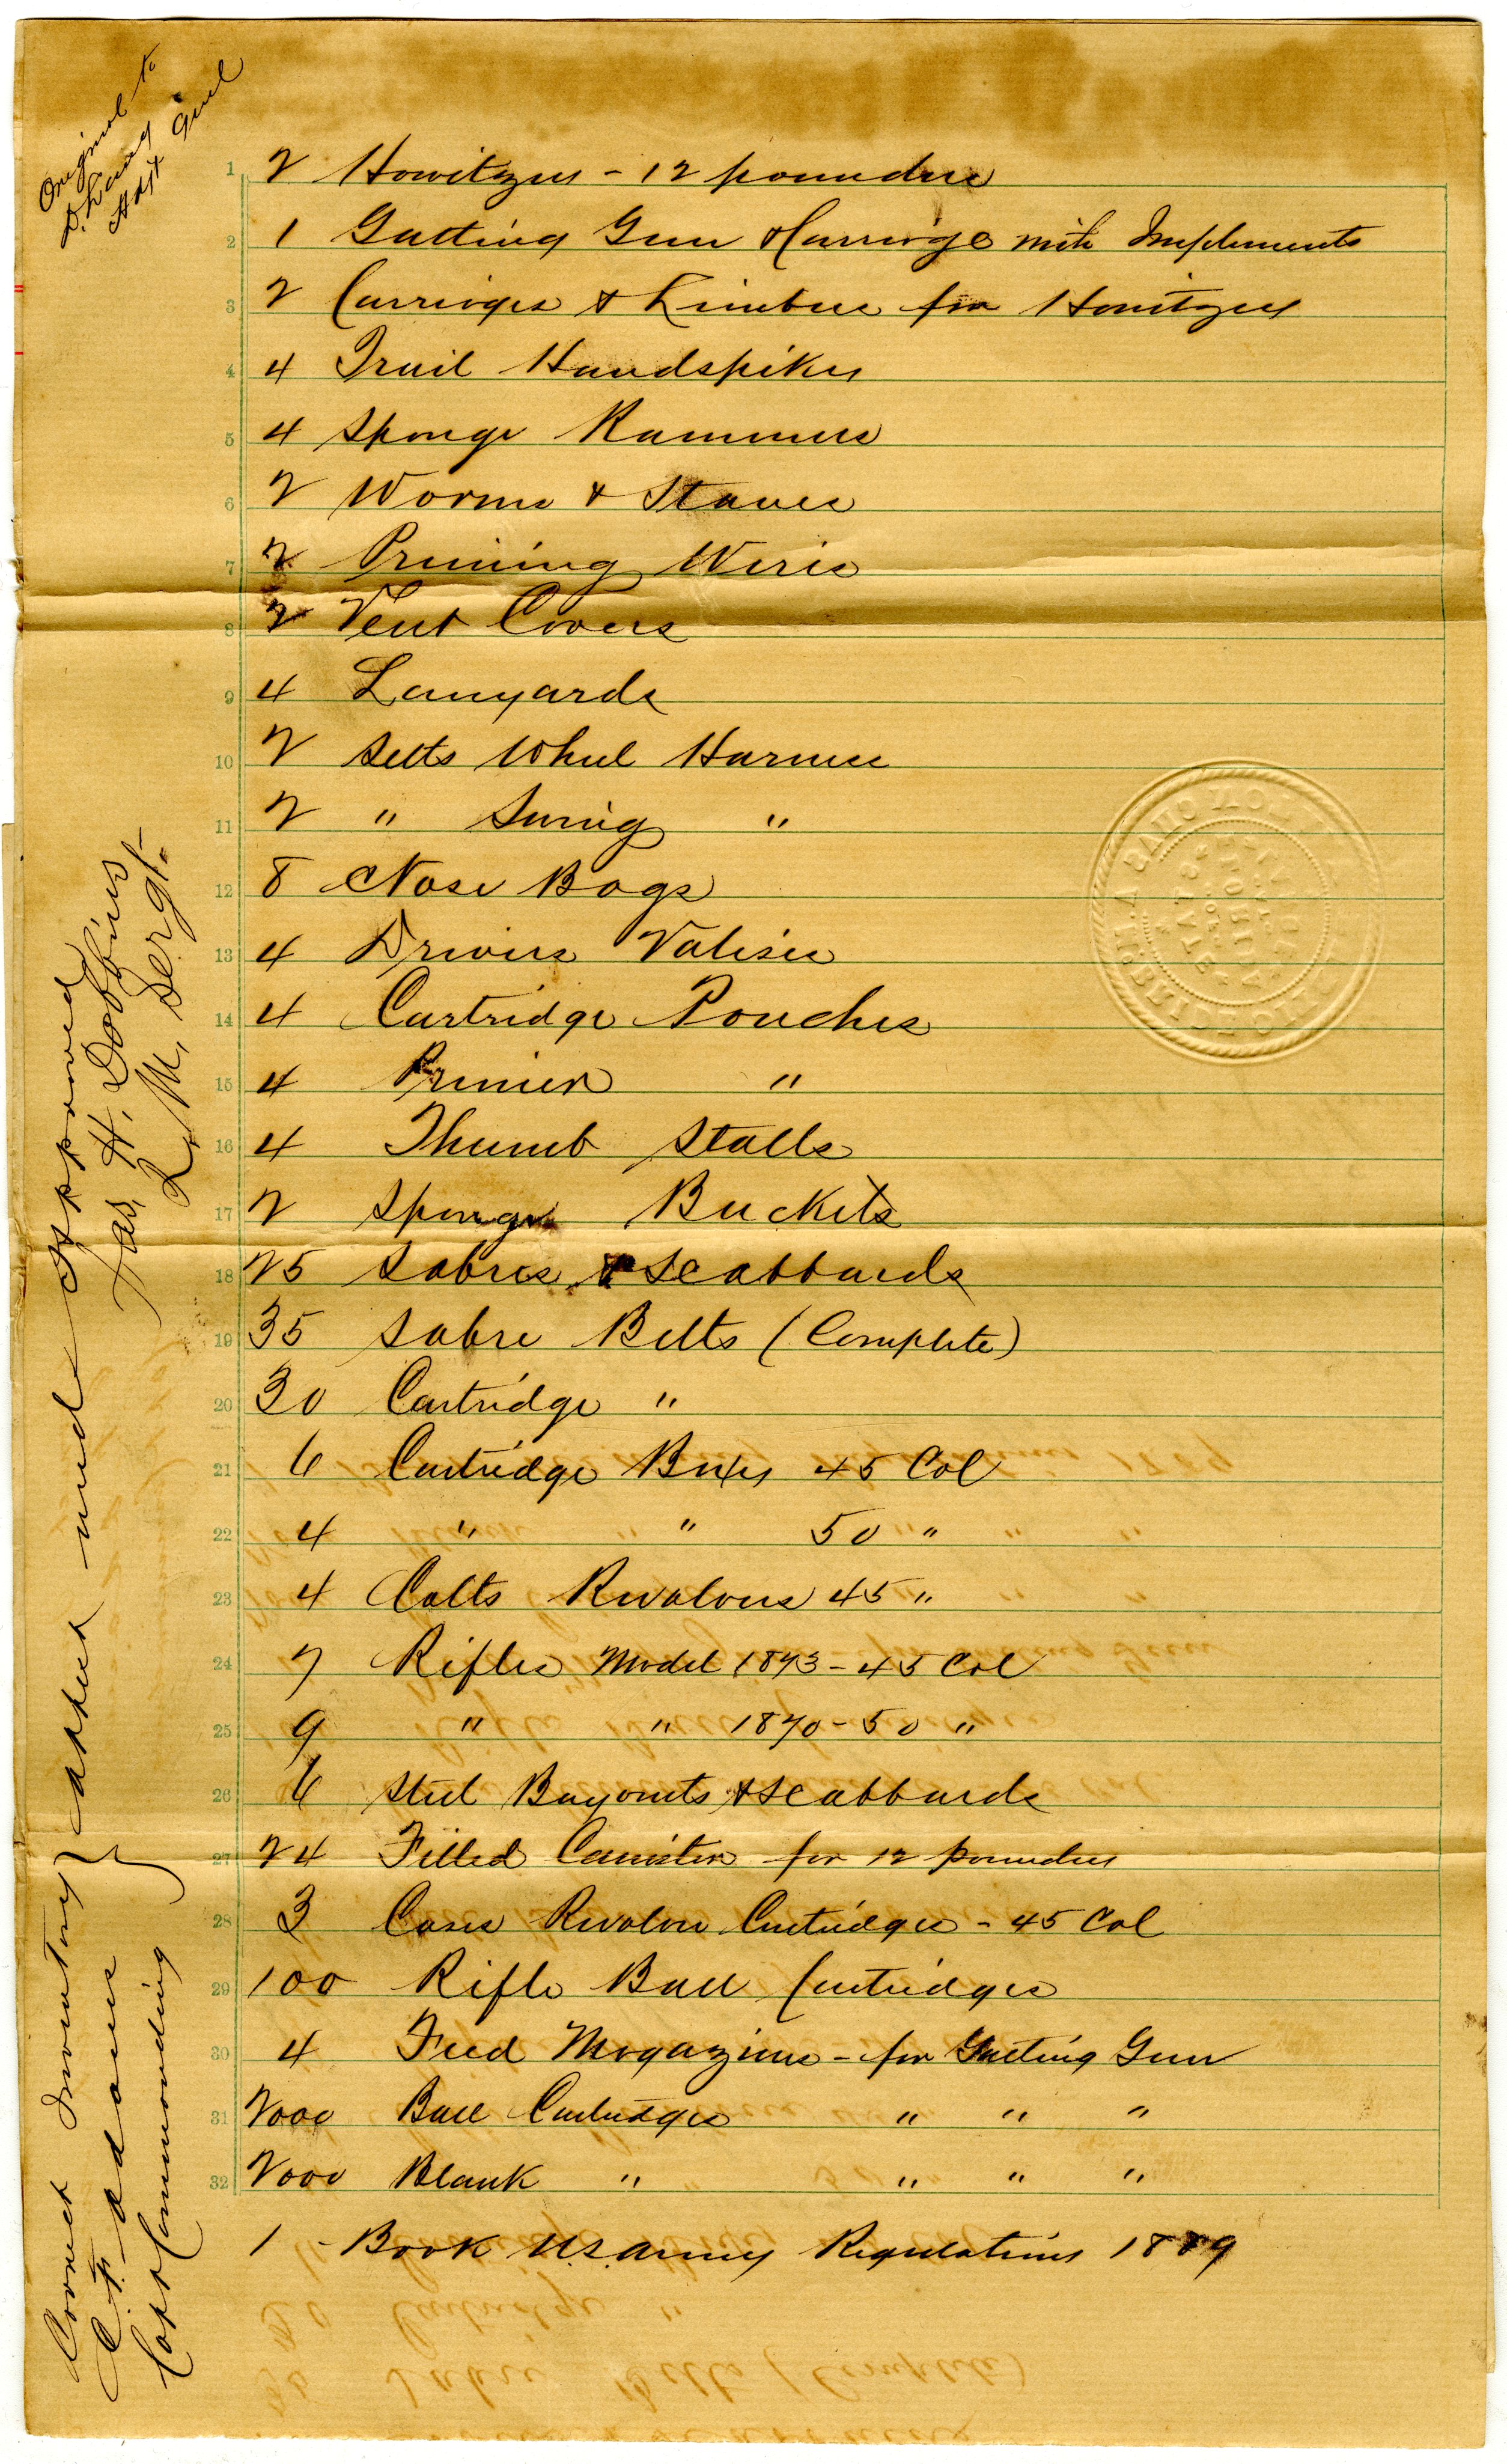 Original to
D. Lang
Adjt Genl
1 2 Howitzers - 12 pounders
2 1 Gatting Gun & Carriage with Implements
3 2 Carriages & Limbers for Howitzers
4 4 Trail Handspikes
5 4 Sponge Rammers
6 2 Worms & Staves
7 2 Priming Wires
8 2 Vent Covers
9 4 Lanyards
10 2 Setts Wheel Harness
11 2 " Swing "
12 8 Nose Bags
13 4 Drivers Valises
14 4 Cartridge Pouches
15 4 Primer "
16 4 Thumb Stalls
17 2 Sponge Buckets
18 25 Sabres & Scabbards
19 35 Sabre Belts (Complete)
20 30 Cartridge "
21 6 Cartridge Boxes 45 Cal
22 4 " " 50 "
23 4 Colts Revolvers 45 "
24 7 Rifles Model 1873 - 45 Cal
25 9 " " 1870 - 50 "
26 6 Steel Bayonets & Scabbards
27 24 Filled Canister for 12 pounders
28 3 Cases Revolver Cartridges - 45 Cal
29 100 Rifle Ball Cartridges
30 4 Feed Magazines - for Gatting Gun
31 2000 Ball Cartridges " " "
32 2000 Blank " " " "
1 - Book U.S. Army Regulations 1889
Correct Inventory }
C. F. Adams
Capt Commanding
Approved
Jas, H, Dobbins
Q, M, Sergt.